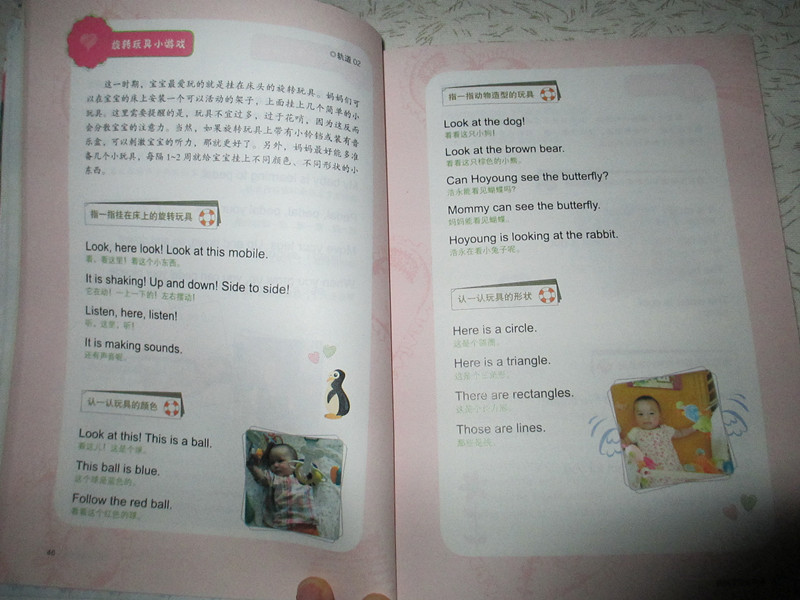 旋转玩具小游戏
轨道 02
这一时期，宝宝最爱玩的就是挂在床头的旋转玩具。妈妈们可
以在宝宝的床上安装一个可以活动的架子，上面挂上几个简单的小
玩具。这里需要提醒的是，玩具不宜过多，过于花哨，因为这反而
会分散宝宝的注意力。当然，如果旋转玩具上带有小铃铛或装有音
乐盒，可以刺激宝宝的听力，那就更好了。另外，妈妈最好能多准
备几个小玩具，每隔1~2周就给宝宝挂上不同颜色、不同形状的小
东西。
指一指挂在床上的旋转玩具
Look, here look! Look at this mobile.
看，看这里！看这个小东西。
It is shaking! Up and down! Side to side!
它在动！一上一下的！左右摆动！
Listen, here, listen!
听，这里，听！
It is making sounds.
还有声音呢。
认一认玩具的颜色
Look at this! This is a ball.
看这儿！这是个球。
This ball is blue.
这个球是蓝色的。
Follow the red ball.
看着这个红色的球。
60
指一指动物造型的玩具
Look at the dog!
看看这只小狗！
Look at the brown bear.
看看这只棕色的小熊。
Can Hoyoung see the butterfly?
浩永能看见蝴蝶吗？
Mommy can see the butterfly.
妈妈能看见蝴蝶。
Hoyoung is looking at the rabbit.
浩永在看小兔子呢。
认一认玩具的形状
Here is a circle.
这是个圆圈。
Here is a triangle.
这是个三角形。
There are rectangles.
Those are lines.
那些是线。